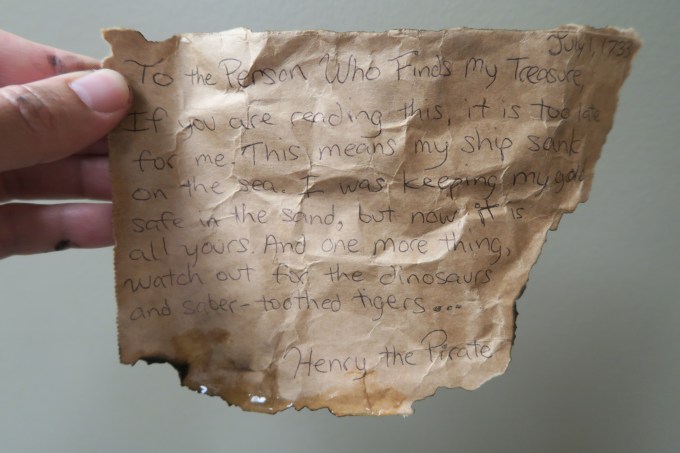 July 1, 173
To the Person Who Finds My Treasure,
If you are reading this, it is too late
for me. This means my ship sank
on the sea. I was keeping my gold
safe in the sand, but now it is
all yours. And one more thing,
watch out for the dinosaurs
and saber-toothed tigers...
Henry the Pirate